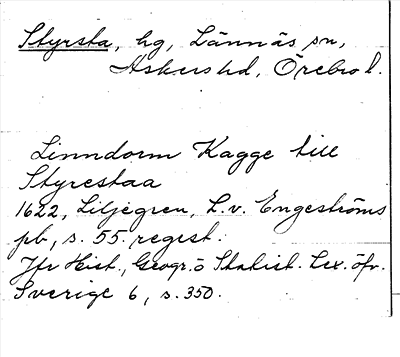 Styrsta, hg, Lännäs sn,
Askers hd, Örebro l.
Linndorm Kagge till
Styrestaa
1622, Liljegren, L. v. Engeströms
pb, s. 55. regist.
Jfr Hist., Geogr. o Statist. Lex. öfv.
Sverige 6, s. 350.